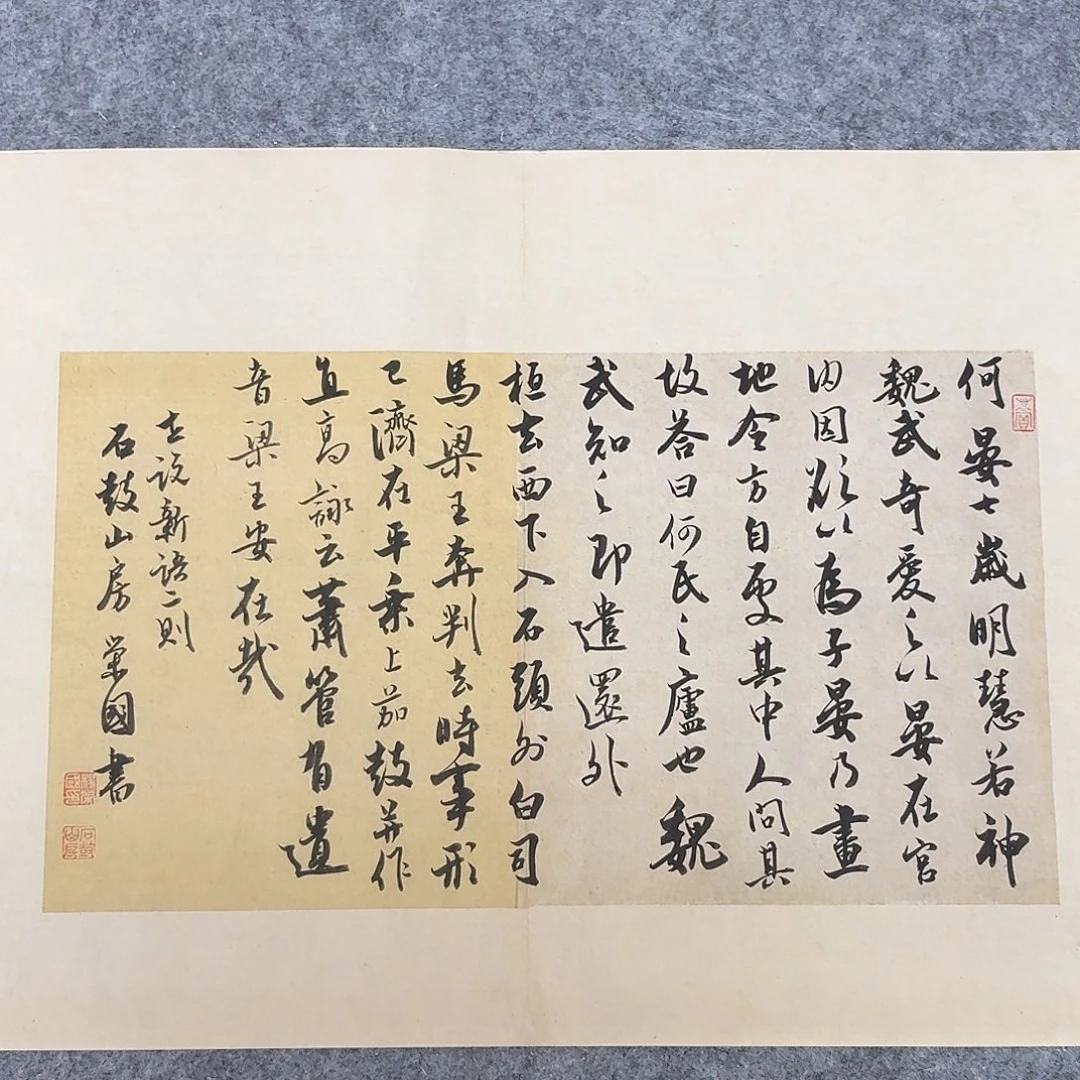 何晏七歲明慧若神
魏武奇愛之以晏在宮
内因欲以為子晏乃畫
地令方自處其中人問其
故答曰何氏之廬也魏
武知之即遣還外
桓玄西下入石頭外白司
馬梁王奔判玄時事形
已濟在平乘上笳鼓并作
直高詠云蕭管有遺
音梁王安在哉
世說新語二則
石鼓山房國書
石鼓山房